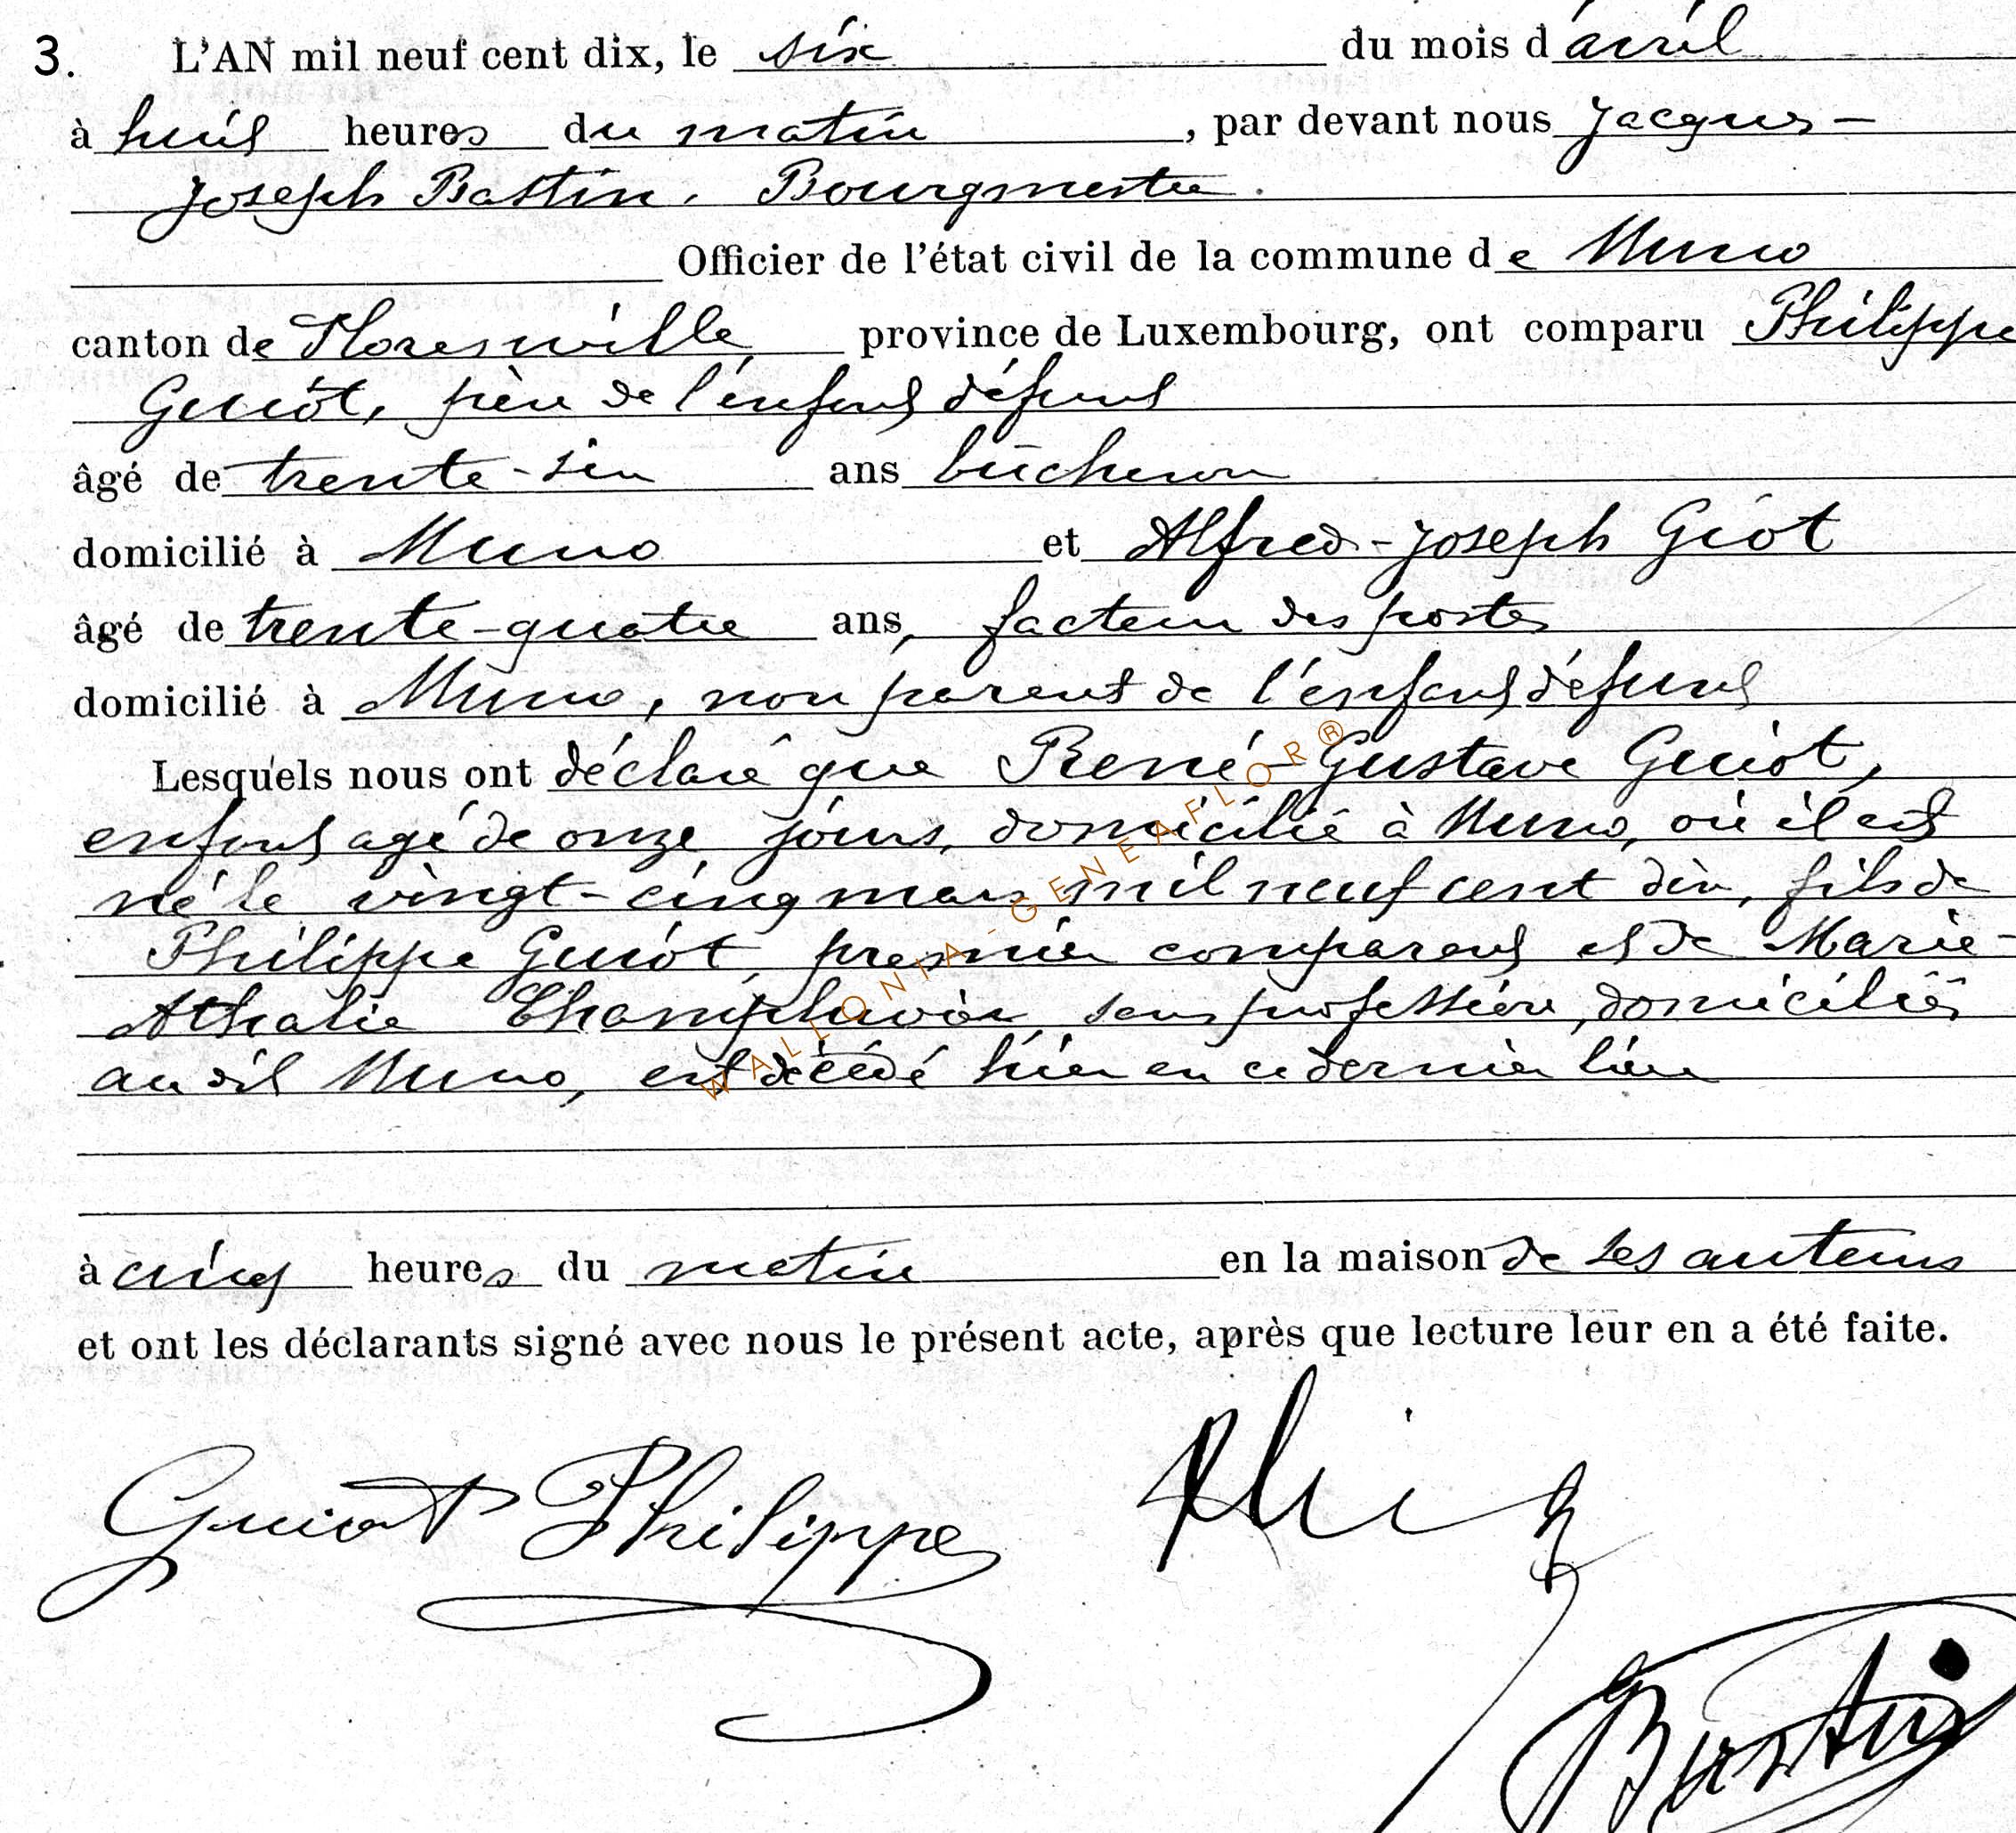 3. L'AN mil neuf cent dix, le six du mois d'avril
à huit heures du matin, par devant nous Jacques-
Joseph Bastin, Bourgmestre.
Officier de l'état civil de la commune de Muno
canton de Florenville province de Luxembourg, ont comparu Philippe
Guiot, père de l'enfant défunt
âgé de trente-six ans bûcheron
domicilié à Muno et Alfred-Joseph Giot
âgé de trente-quatre ans, facteur des postes
domicilié à Muno, non parent de l'enfant défunt
Lesquels nous ont déclaré que René-Gustave Guiot,
enfant agé de onze jours, domicilié à Muno, où il est
né le vingt-cinq mars mil neuf cent dix, fils de
Philippe Guiot, premier comparant et de Marie-
Athalie sans profession, domiciliés
au dit Muno, est décédé hier en ce dernier lieu
à cinq heures du matin en la maison de ses auteurs
et ont les déclarants signé avec nous le présent acte, après que lecture leur en a été faite.
Guiot Philippe
Bastin
WALLONIA-GENEAFLOR®